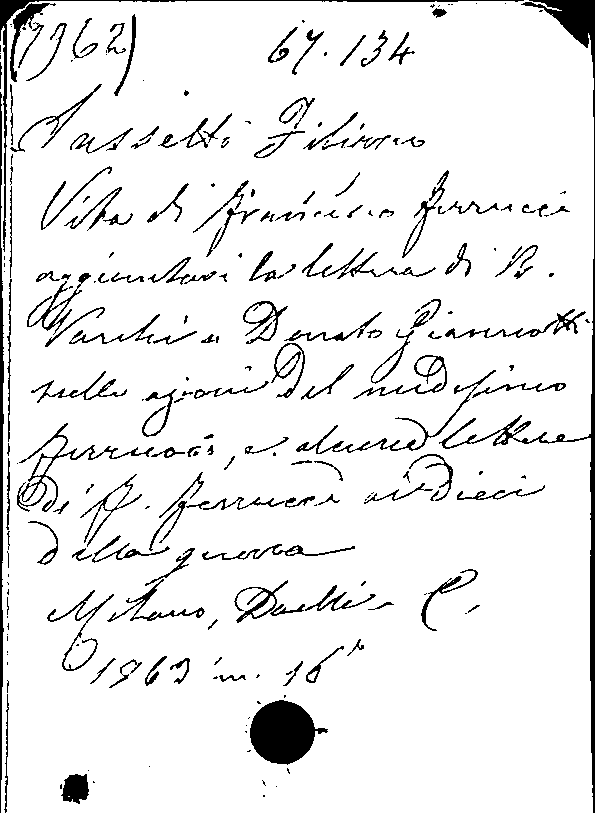 (7962) 67.134
Sassetti Filippo
Vita di Francesco Ferrucci
aggiuntavi la lettera di B.
Varchi a Donato Giannotti
sulle azioni del medesimo
Ferrucci, e alcune lettere
di F. Ferrucci ai Dieci
della guerra
Milano, Daelli e C.
1863 in 16°